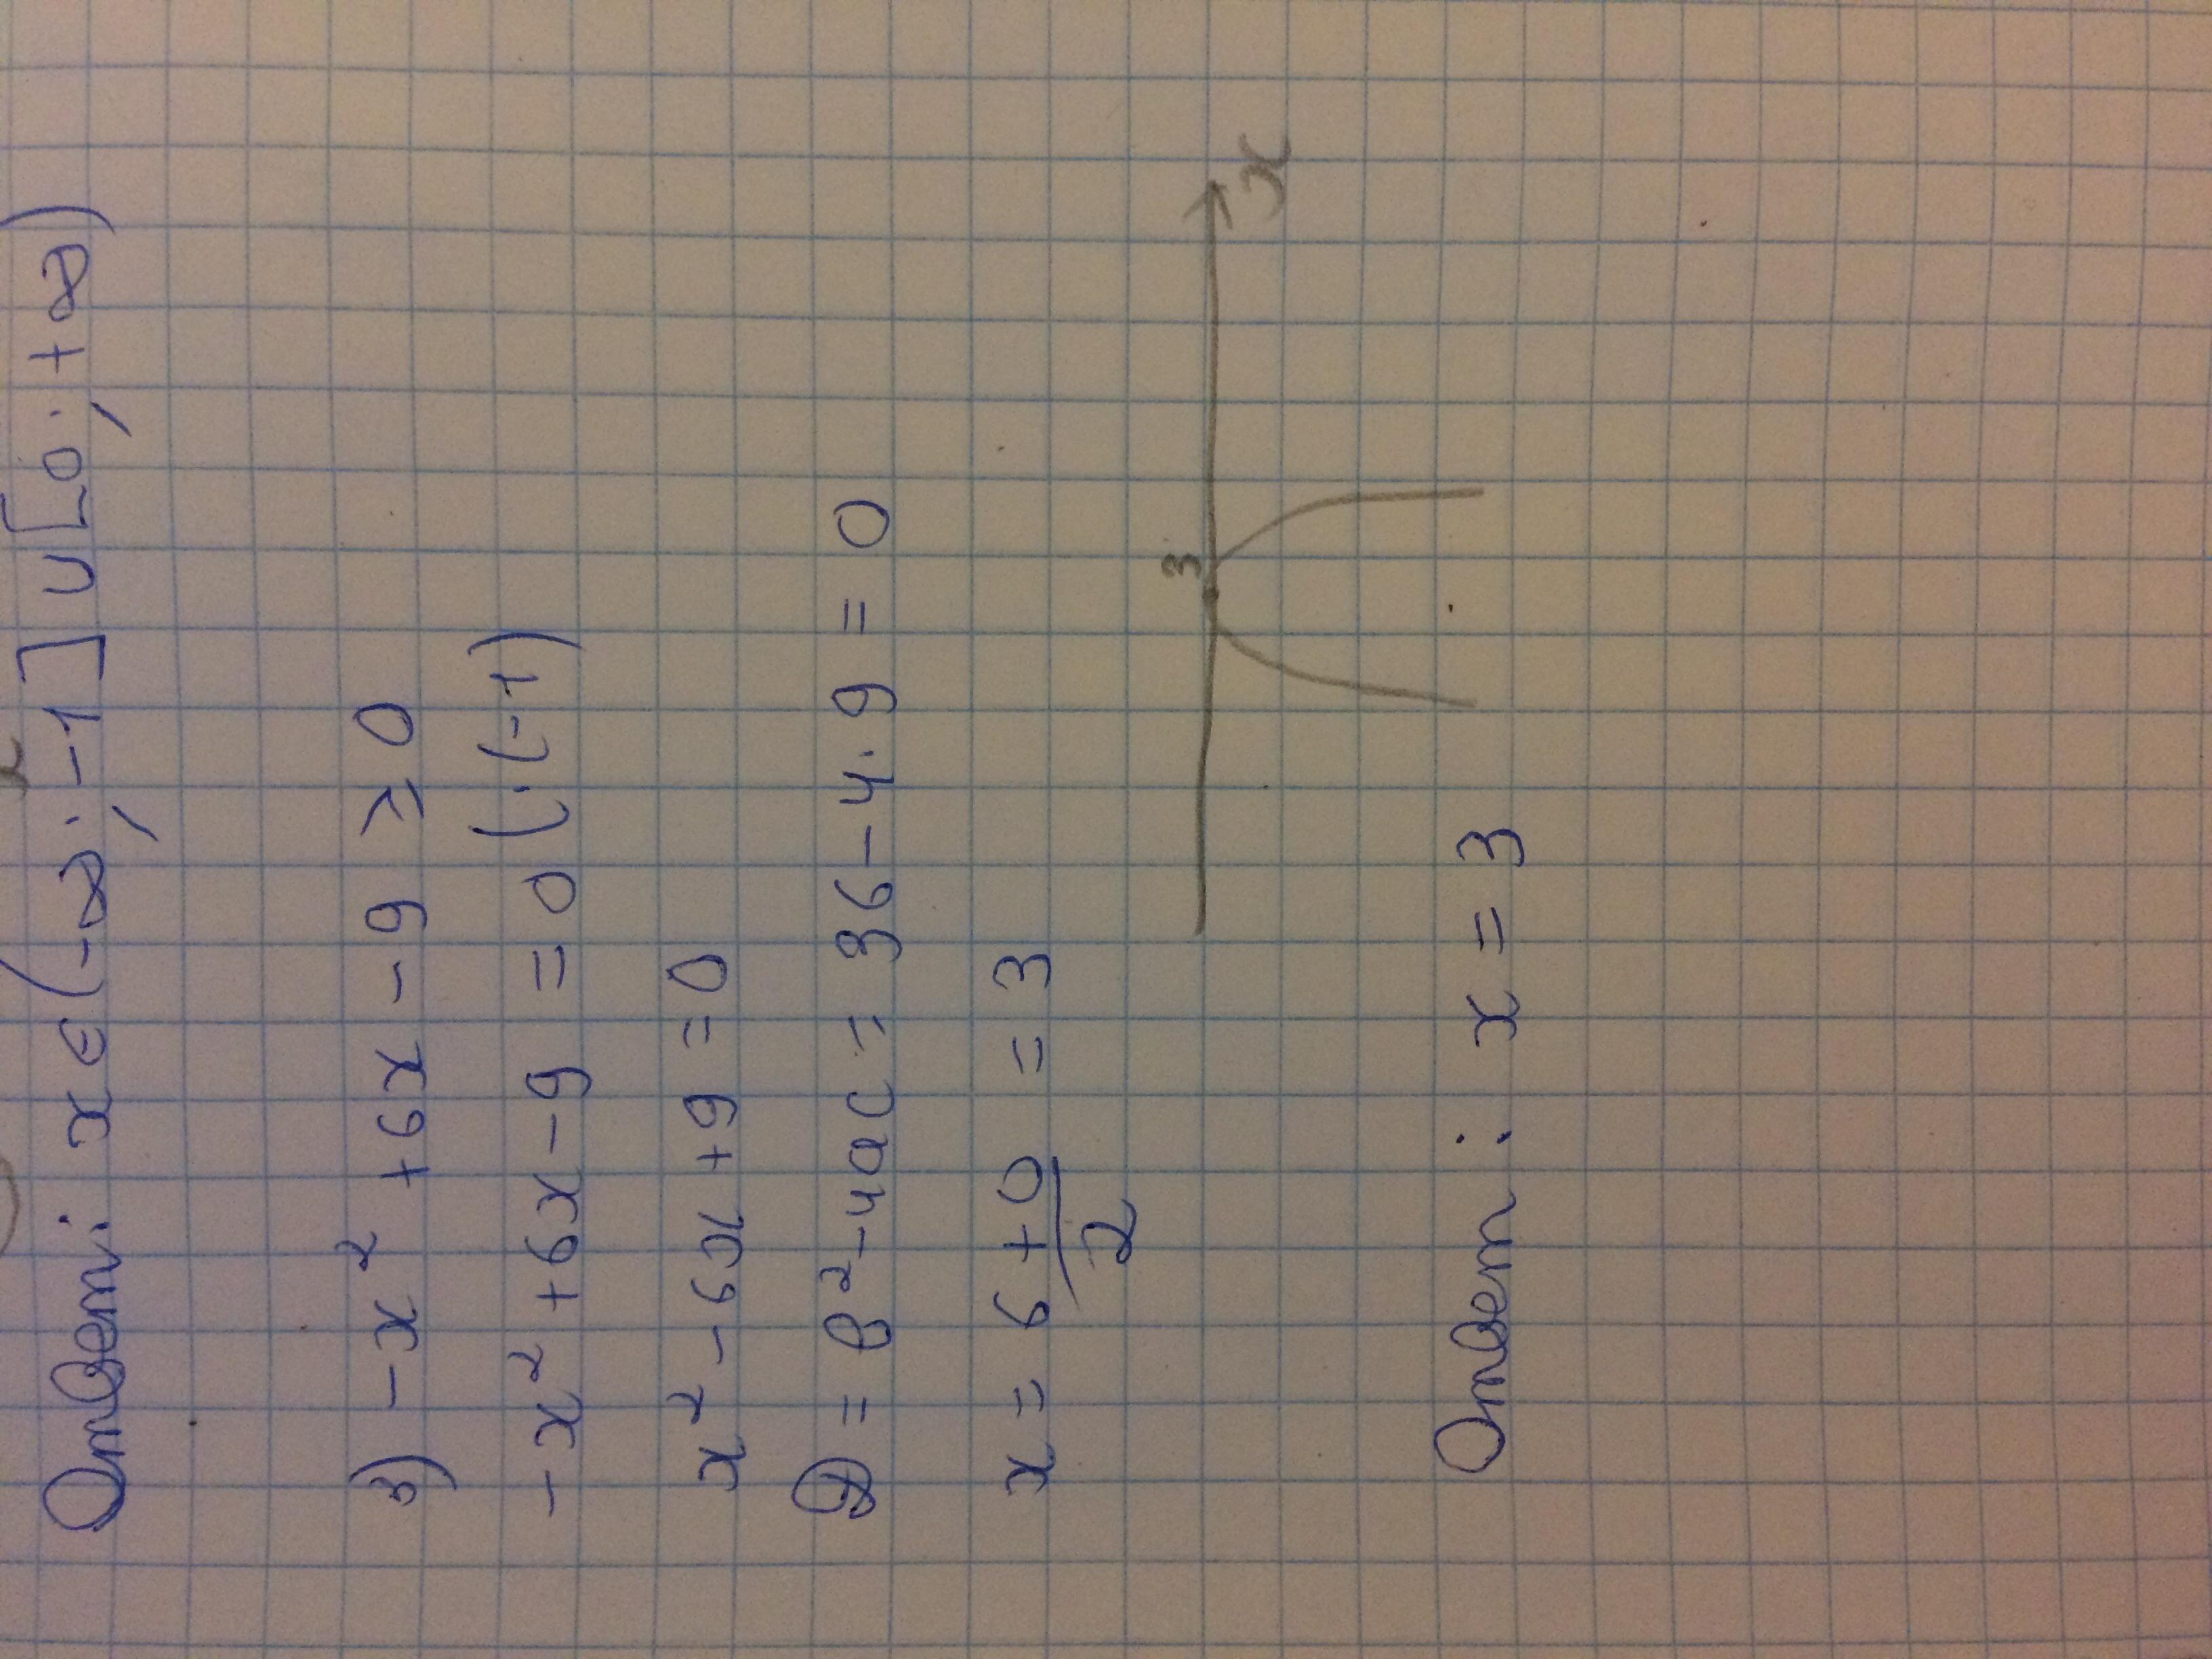 Ответ: x ∈ (-∞; -1] ∪ [0; +∞)
3) -x² + 6x - 9 ≥ 0
-x² + 6x - 9 = 0 (·(-1)
x² - 6x + 9 = 0
D = b² - 4ac = 36 - 4·9 = 0
x = (6+0)/2 = 3
3
x
Ответ: x = 3